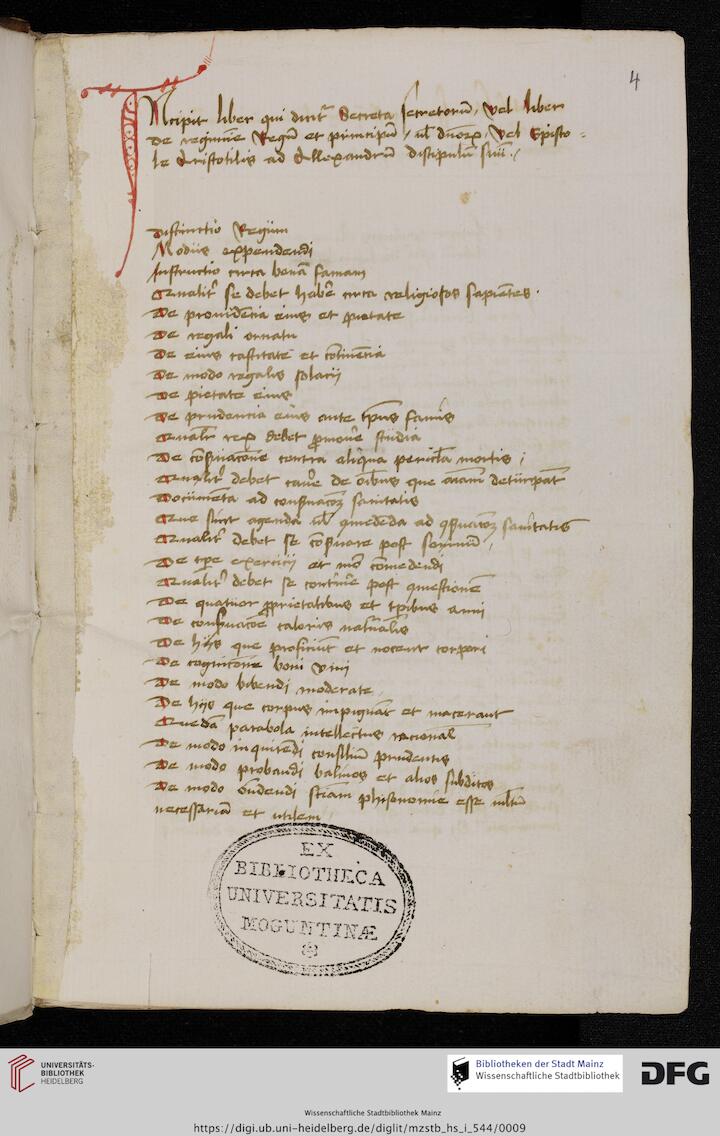 4
Incipit liber qui dicitʳ Secreta secretorū, vel liber
De regimīe Regū et principū, ul̄ dn̄orꝫ, vel Episto-
le Aristotilis ad Allexandrū discipulū suū.
Distinctio Regum
Modus expendendi
Instructio circa bonā famam
Qualitʳ se debet habēe circa religiosos sapiētes.
De providēcia eius et pietate
De regali ornatu
De eius castitate et cōtinēcia
De modo regalis solacii
De pietate eius
De prudencia eius ante tp̄us famis
Qualr̄ rex debet pmovēe studia
De cōsuacōne contra aliqua pericl̄a mortis
Qualitʳ debet cavēe de oībus que aīam deturpāt
Documēta ad consuacōꝫ sanitatis
Que sunt agenda ul̄ comedēda ad ꝯsuacōꝫ sanitatis
Qualitʳ debet se cōsuare post somnū
De tpē exercicii et mō comedendi
Qualitʳ debet se continēe post questionē
De quatuor pprietatibus et tp̄ibus anni
De consuacōe caloris naturalis
De hiis que proficiūt et nocent corpori
De cognicōne boni vini
De modo bibendi moderate
De hiis que corpus inpiguāt et macerant
Quedā parabola intellectus racional̄
De modo inquirēdi consiliū prudentis
De modo probandi balivos et alios subditos
De modo ondendi sciam phisonomie esse ml̄tū
necessariā et utilem
EX
BIBLIOTHECA
UNIVERSITATIS
MOGUNTINÆ
UNIVERSITÄTS-
BIBLIOTHEK
HEIDELBERG
Bibliotheken der Stadt Mainz
Wissenschaftliche Stadtbibliothek
DFG
Wissenschaftliche Stadtbibliothek Mainz
https://digi.ub.uni-heidelberg.de/diglit/mzstb_hs_i_544/0009